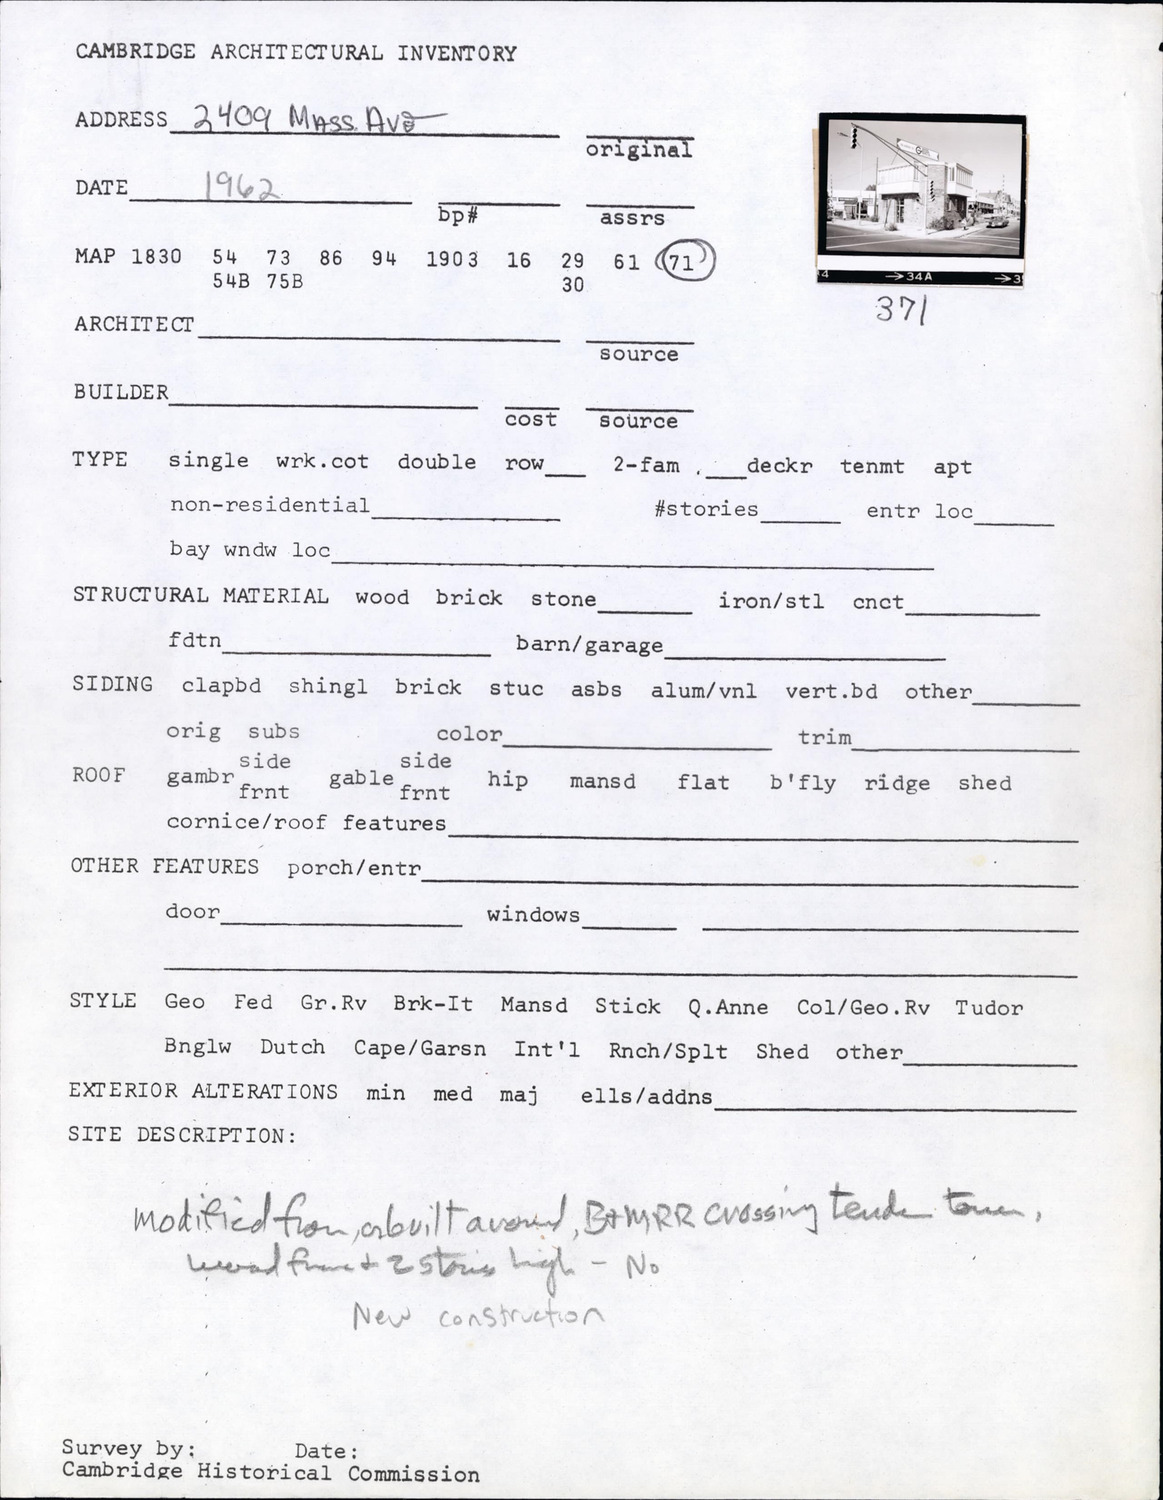 CAMBRIDGE ARCHITECTURAL INVENTORY
ADDRESS 2409 Mass. Ave
original
DATE 1962
bp# assrs
MAP 1830 54 73 86 94 1903 16 29 61 71
54B 75B 30
→34A →3
371
ARCHITECT
source
BUILDER
cost source
TYPE single wrk.cot double row___ 2-fam ___deckr tenmt apt
non-residential #stories entr loc
bay wndw loc
STRUCTURAL MATERIAL wood brick stone iron/stl cnct
fdtn barn/garage
SIDING clapbd shingl brick stuc asbs alum/vnl vert.bd other
orig subs color trim
side side
ROOF gambr gable hip mansd flat b'fly ridge shed
frnt frnt
cornice/roof features
OTHER FEATURES porch/entr
door windows
STYLE Geo Fed Gr.Rv Brk-It Mansd Stick Q.Anne Col/Geo.Rv Tudor
Bnglw Dutch Cape/Garsn Int'l Rnch/Splt Shed other
EXTERIOR ALTERATIONS min med maj ells/addns
SITE DESCRIPTION:
modified from, or built around, B+MRR crossing tender tower,
wood frame + 2 stories high - No
New construction
Survey by: Date:
Cambridge Historical Commission